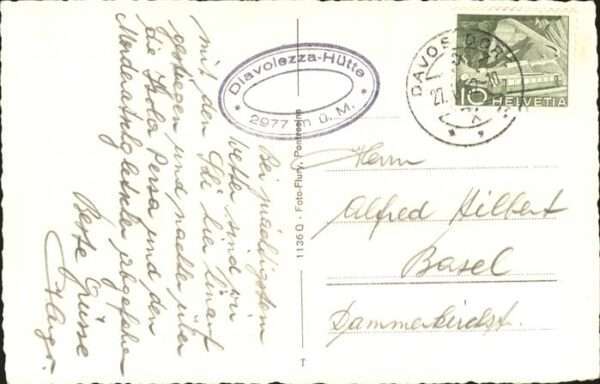 Bei prächtigstem
Wetter sind wir
mit den Ski hier hinauf
gestiegen und nachher über
die Isola Persa und den
Morteratschgletscher abgefahren
Beste Grüsse
Hugo.
Diavolezza-Hütte
2977 m ü. M.
1136 Q - Foto-Flury, Pontresina
DAVOS DORF
10
HELVETIA
Herrn
Alfred Hilbert
Basel
Dammerkirchst.